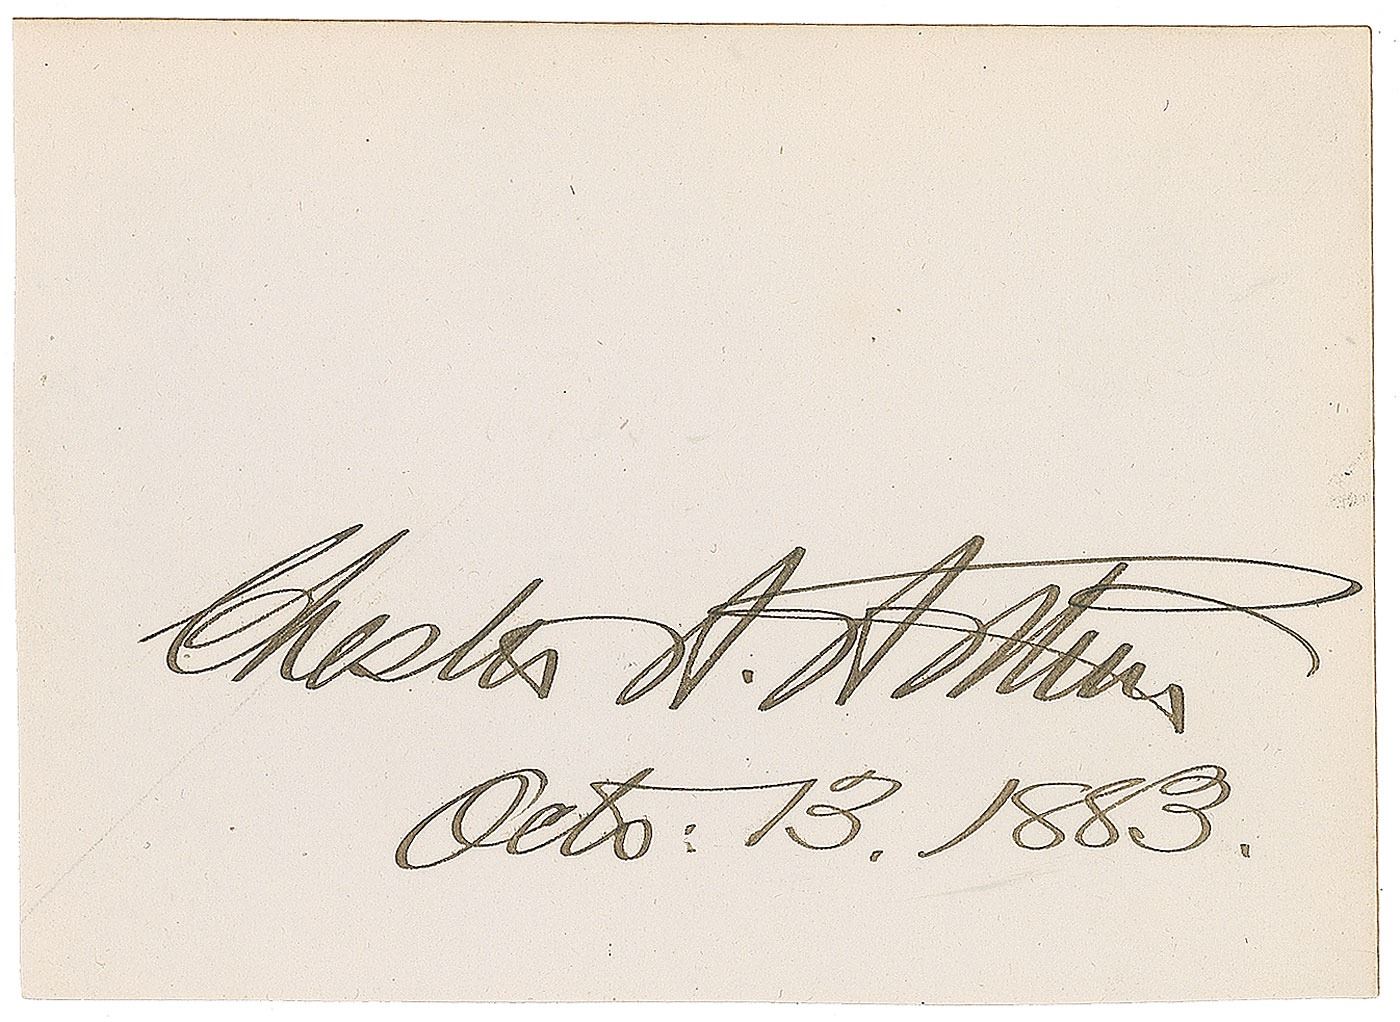 Chester A. Arthur
Octo: 13. 1883.